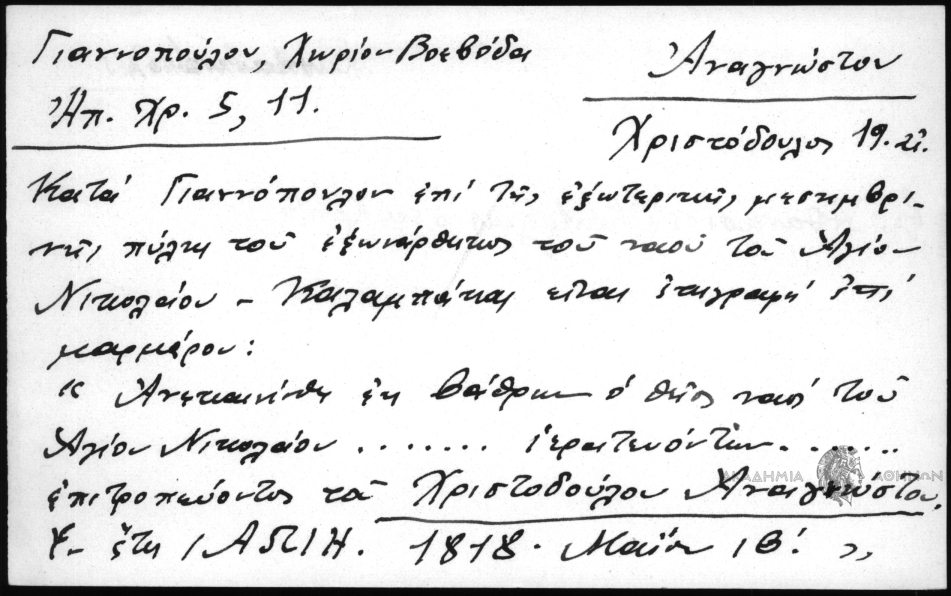 Γιαννοπούλου, Χωρίον Βοεβόδα
Ἀπ. Χρ. 5, 11.
Ἀναγνώστου
Χριστόδουλος 19. αἰ.
Κατά Γιαννόπουλον ἐπί τῆς ἐξωτερικῆς μεσημβρι-
νῆς πύλης τοῦ ἐξωνάρθηκος τοῦ ναοῦ τοῦ Ἁγίου
Νικολάου - Καλαμπάκας εἶναι ἐπιγραφή ἐπί
μαρμάρου:
" Ἀνεκαινίσθη ἐκ βάθρων ὁ θεῖος ναός τοῦ
Ἁγίου Νικολάου ........ ἱερατευόντων .......
ΑΚΑΔΗΜΙΑ ΑΘΗΝΩΝ
ἐπιτροπεύοντος τοῦ Χριστοδούλου Ἀναγνώστου.
ἔτη ΑΩΙΗ. 1818. Μαΐου ΙΒ! "